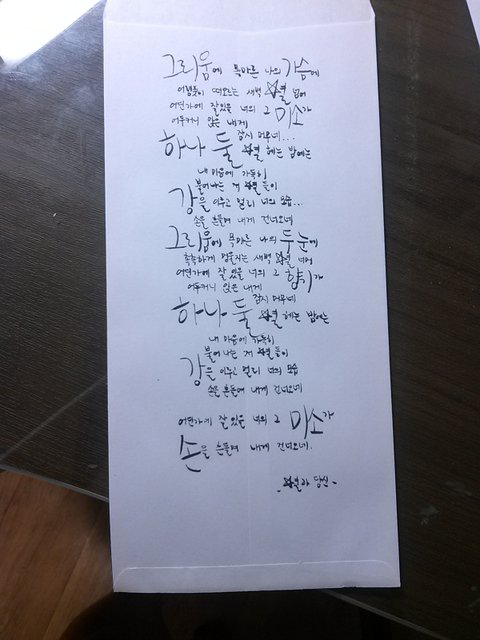 그리움에 목마른 나의 가슴에
어렴풋이 떠오르는 새벽 별 넘어
어딘가에 잘있을 너의 그 미소가
어두커니 앉은 내게
잠시 머무네...
하나 둘 별 헤는 밤에는
내 마음에 가득히
불어나는 저 별들이
강을 이루고 멀리 너의 모습...
손을 흔들며 내게 건너오네
그리움에 목마른 나의 두눈에
촉촉하게 맺혀지는 새벽 별 너머
어딘가에 잘있을 너의 그 향기가
어두커니 앉은 내게
잠시 머무네
하나 둘 별 헤는 밤에는
내 마음에 가득히
불어나는 저 별들이
강을 이루고 멀리 너의 모습
손을 흔들며 내게 건너오네
어딘가에 잘 있을 너의 그 미소가
손을 흔들며 내게 건너오네.
- 별과 당신 -